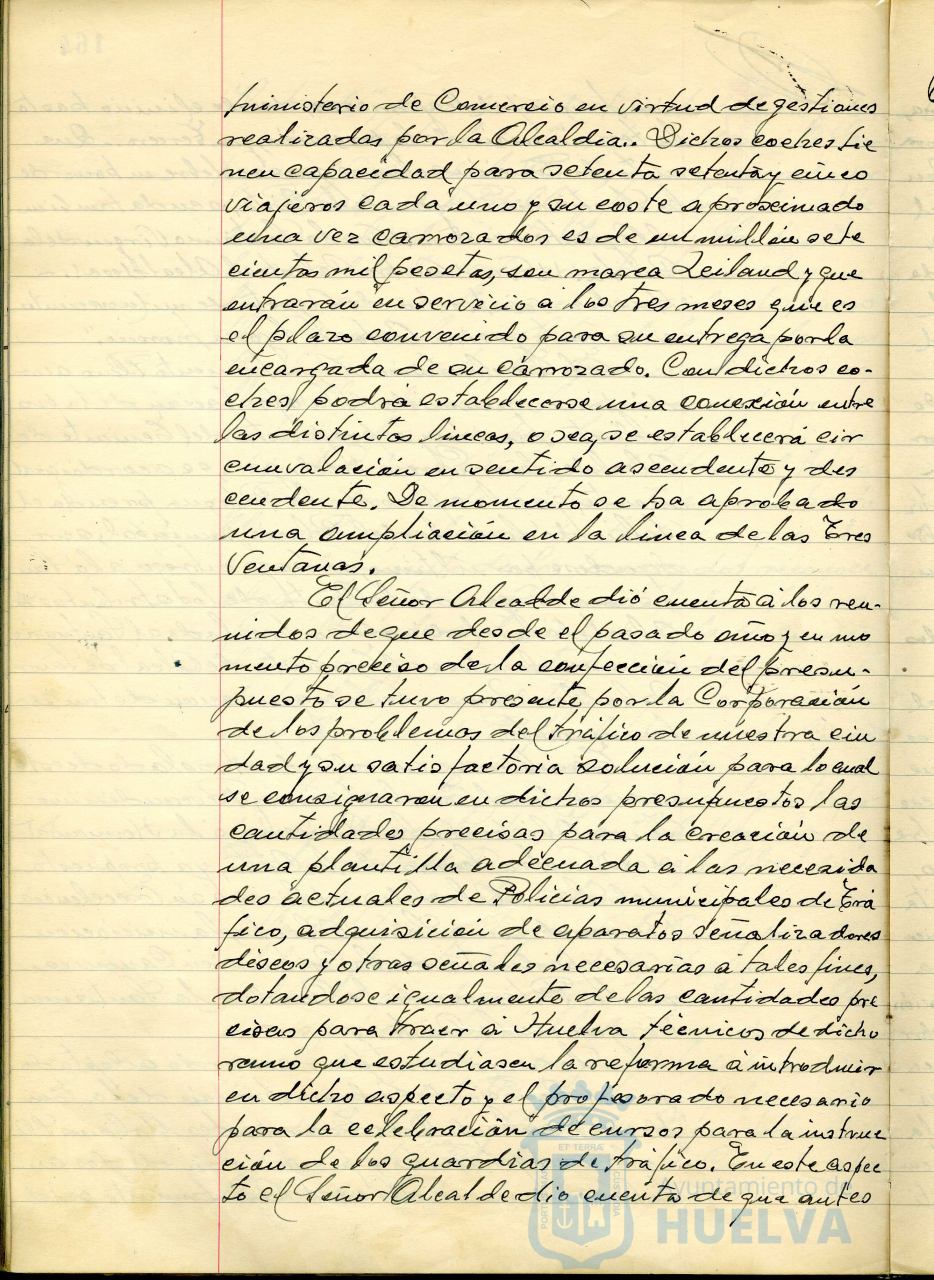 Ministerio de Comercio en virtud de gestiones
realizadas por la Alcaldía.. Dichos coches tie
nen capacidad para setenta setenta y cinco
viajeros cada uno y su coste aproximado
una vez carrozados es de un millón sete
cientas mil pesetas, son marca Leiland y que
entrarán en servicio a los tres meses que es
el plazo convenido para su entrega por la
encargada de su carrozado. Con dichos co-
ches podrá establecerse una conexión entre
las distintas lineas, o sea, se establecerá cir
cunvalación en sentido ascendente y des
cendente. De momento se ha aprobado
una ampliación en la linea de las Tres
Ventanas.
El Señor Alcalde dió cuenta á los reu-
nidos de que desde el pasado año y en mo
mento preciso de la confección del presu-
puesto se tuvo presente por la Corporación
de los problemas del tráfico de nuestra ciu
dad y su satisfactoria solución para lo cual
se consignaron en dichos presupuestos las
cantidades precisas para la creación de
una plantilla adecuada á las necesida
des actuales de Policias municipales de Trá
fico, adquisición de aparatos señalizadores
discos y otras señales necesarias á tales fines,
dotandose igualmente de las cantidades pre
cisas para traer á Huelva técnicos de dicho
ramo que estudiasen la reforma á introducir
en dicho aspecto y el profesorado necesario
para la celebración de cursos para la instruc
ción de los guardias de tráfico. En este aspec
to el Señor Alcalde dio cuenta de que antes
Ayuntamiento de
HUELVA